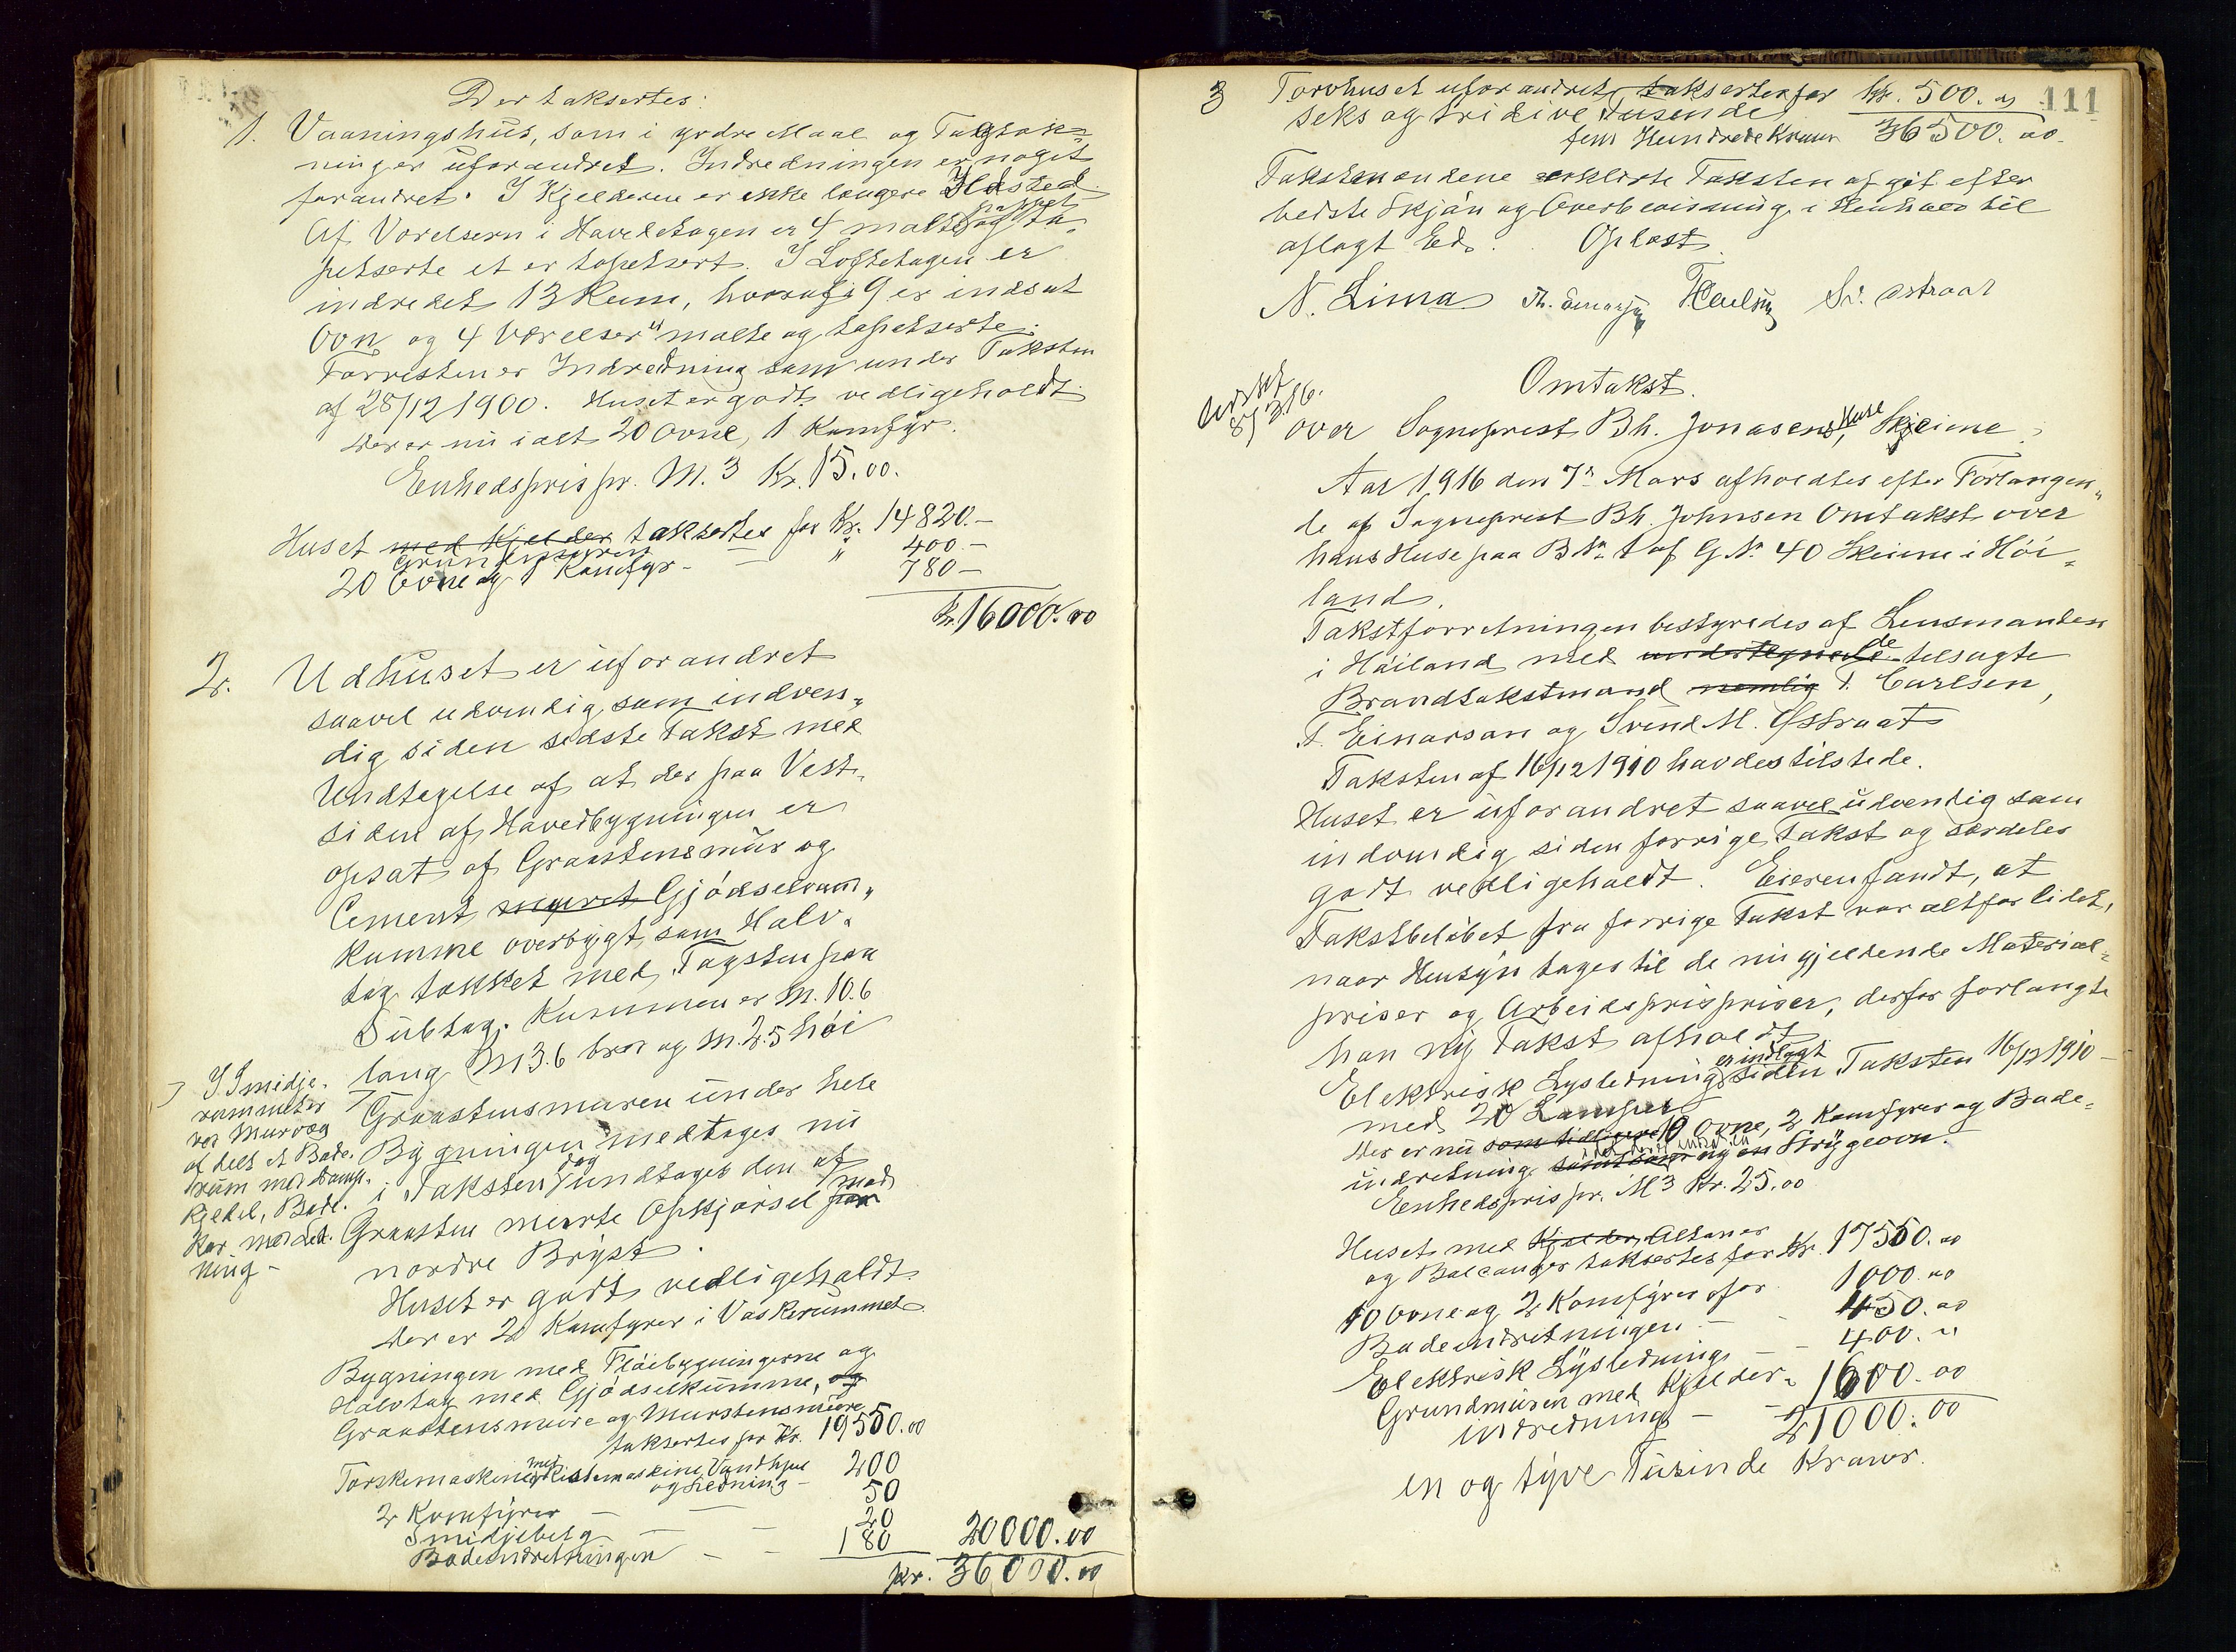 Der taksertes:
1. Vaaningshus, som i ydre Maal og Tagtæk-
ning er uforandret. Indredningen er noget
forandret. I Kjelderen er ikke længere Ildsted.
Af Værelsern i Hovedetagen er 4 malte og ta-
petserte et er tapetsert. I Loftetagen er
indredet 13 Rum, hvoraf i 9 er indsat
Ovn og 4 Værelser malte og tapetserte.
Forresten er Indredning som under Taksten
af 28/12 1900. Huset er godt vedligeholdt.
Der er nu ialt 20 Ovne, 1 Komfyr.
Enhedspris pr. M.3 Kr. 15.00.
Huset med Kjelder taksertes for Kr. 14820.-
Grundmuren " 400.-
20 Ovne og 1 Komfyr - 780-
Kr. 16000.00
2. Udhuset er uforandret
saavel udvendig som indven-
dig siden sidste Takst med
Undtagelse af at der paa Vest-
siden af Hovedbygningen er
opsat af Graastensmur og
Cement Gjödselvan-
kumme overbygt som Halv-
tag tækket med Tagsten paa
Subtag. Kummen er M. 10.6
lang M 3.6 bred og M. 2.5 höi
Graastensmuren under hele
Bygningen medtages nu
i Taksten dog undtages den af
Graasten murte Opkjörsel paa mod
nordre Bryst.
I Smidje-
rummet er
ved Murværg
af delt et Bade-
rum med Damp-
kjedel, Bade-
kar med Led-
ning -
Huset er godt vedligeholdt.
Der er 2 Komfyrer i Vaskerummet
Bygningen med Flöibygningerne og
Halvtag med Gjödselkumme, og
Graastensmure og Murstensmure
taksertes for Kr. 19550.00
Torskemaskine med Ristemaskine, Vandhjul
og Ledning - 200
2 Komfyrer - 50
Smidjebelg - 20
Badeindretningen - 180 20000.00
Kr. 36000.00
111
3 Torvhuset uforandret, taksertes for Kr. 500.00
seks og tridive Tusende
fem Hundrede Kroner 36500.00
Takstmændene erklærte Taksten afgit efter
bedste Skjön og Overbevisning, i Henhold til
aflagt Ed. Oplæst
N. Lima Th. Einarsen Sv. Østraat
Omtakst.
Udskr.
8/3 16.
over Sogneprest Bh. Jonasens Huse, Skjeime.
Aar 1916 den 7de Mars afholdtes efter Forlangen-
de af Sogneprest Bh. Johnsen Omtakst over
hans Huse paa B Nr. 1 af G Nr. 40 Skeime i Höi-
land.
Takstforretningen bestyredes af Lensmanden
i Höiland med undertegnede de tilsagte
Brandtakstmænd nemlig T. Carlsen,
T. Einarsen og Svend M. Østraat
Taksten af 16/12 1910 havdes tilstede.
Huset er uforandret saavel udvendig som
indvendig siden forrige Takst og særdeles
godt vedligeholdt. Eieren fandt, at
Takstbelöbet fra forrige Takst var altfor lidet,
naar Hensyn tages til de nu gjeldende Material-
priser og Arbeidsprispriser, derfor forlangte
han ny Takst afholdt
Elektrisk Lysledning er indlagt siden Taksten 16/12 1910-
med 20 Lamper
Der er nu som tidligere 10 Ovne, 2 Komfyrer og Bade-
indretning en Strygeovn.
Enhedspris pr. M3 Kr. 25.00
Huset med Kjelder, Altaner
og Balconger taksertes for Kr. 17550.00
10 Ovne og 2 Komfyrer for 1000.00
Badeindretningen - - 450.00
Elektrisk Lysledning - - 400.00
Grundmuren med Kjelder- 1600.00
indredning - - 21000.00
en og tyve Tusinde Kroner.